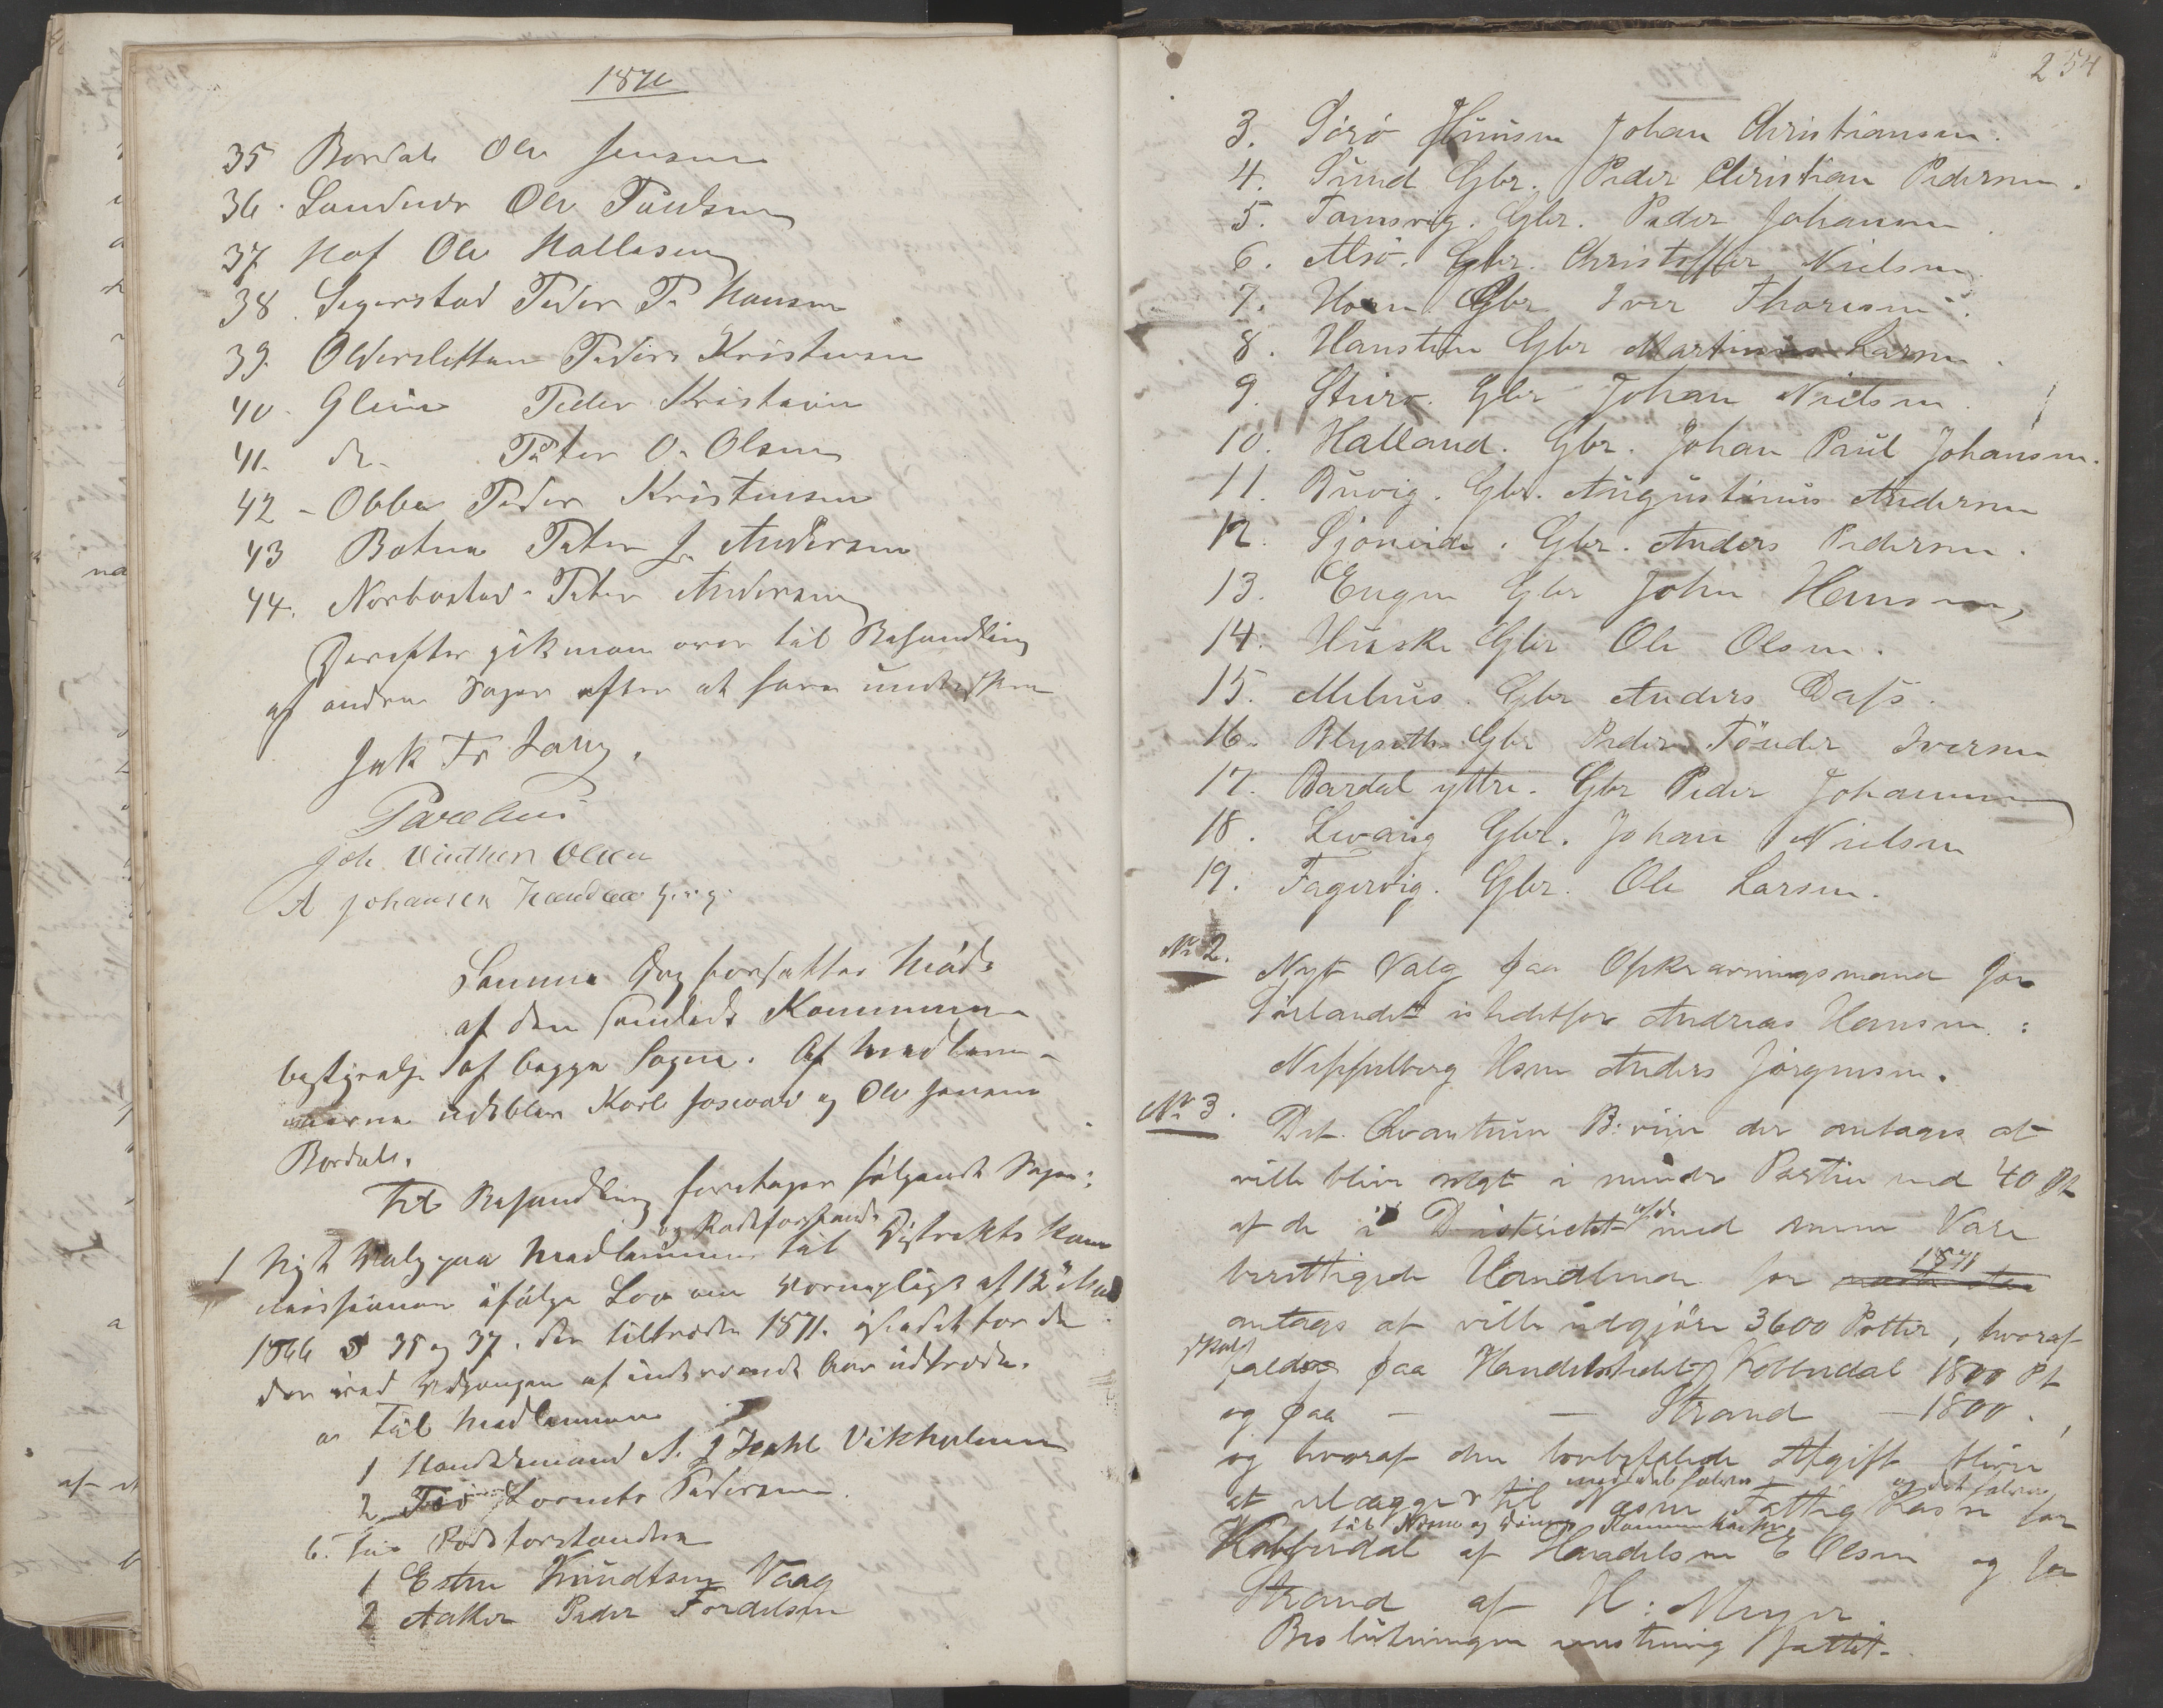 1870
35 Bardal Ole Jensen
36. Sandnes Ole Paulsen
37 Hof Ole Hallesen
38. Segerstad Peder P. Hansen
39. Oldersletten Peder Kristensen
40. Glein Peder Kristensen
41. do. Peter O. Olsen
42 - Obbe Peder Kristensen
43 Botnes Peter J. Andersen
44. Norbostad. Peter Andersen
Derefter gik man over til Behandling
af andre Sager efter at have underskr
Jak Fr Lang.
Parelius
Joh. Vinther Olsen
A Johansen
Samme Dag fortsattes Møde
af den samlede Kommune-
bestyrelse af begge Sogne. Af Medlem-
merne udeblev Karl Josvav og Ole Jensen
Bardal.
Til Behandling foretoges følgende Sager:
og Rodeforstandere
1 Nyt Valg paa Medlemmer til Distrikts Kom
missionen ifølge Lov om Værnepligt af 12te Mai
1866 § 35 og 37. der tiltræder 1871. istedetfor de
der ved Udgangen af indeværende Aar udtræder.
a Til Medlemmer
1 Handelsmand A. J Zahl Vikholmen
2 Lorents Pedersen
b. Til Rodeforstandere
1 Esten Knudtsen Vaag
2 Aaker Peder Fordelsen
254
3. Sørø Huusm Johan Christiansen.
4. Sund Gbr. Peder Christian Pedersen.
5. Tamsvig. Gbr. Peder Johansen.
6. Alsø. Gbr. Christoffer Nielsen.
7. Horn Gbr Iver Thoresen.
8. Hansten Gbr Martinus Larsen.
9. Sturo. Gbr Johan Nielsen.
10. Halland. Gbr. Johan Paul Johansen.
11. Buvig. Gbr. Augustinus Andersen
12. Sjøneide. Gbr. Anders Pedersen.
13. Engen Gbr John Hansen,
14. Huske Gbr Ole Olsen.
15. Melnes. Gbr Anders Dass.
16. Blyseth Gbr Peder Tønder Iversen
17. Bardal yttre. Gbr Peder Johannesen
18. Levang Gbr. Johan Nielsen
19. Fagervig. Gbr. Ole Larsen.
No 2.
Nyt Valg paa Opkrævningsmand for
Sørlandet istedetfor Andreas Hansen:
Neppelberg Hsm Anders Jørgensen.
No 3.
Det Qvantum B:viin der antages at
ville blive solgt i mindre Partier end 40 Pt
af de i Districtet med denne Vare
berettigede Handlende for 1871
antages at ville udgjøre 3600 Potter, hvoraf
skal
falde paa Handelsstedet Kobberdal 1800 Pt
og paa — — Strand — 1800.
og hvoraf den lovbefalede Afgift bliver
med det halve og det halve
at erlægges til Næsne Fattig Kasse for
til Næsne og Dønnes Kommunekasse
Kobberdal af Handelsm E Olsen og for
Strand af H: Meyer.
Beslutningen eenstemmig fattet.